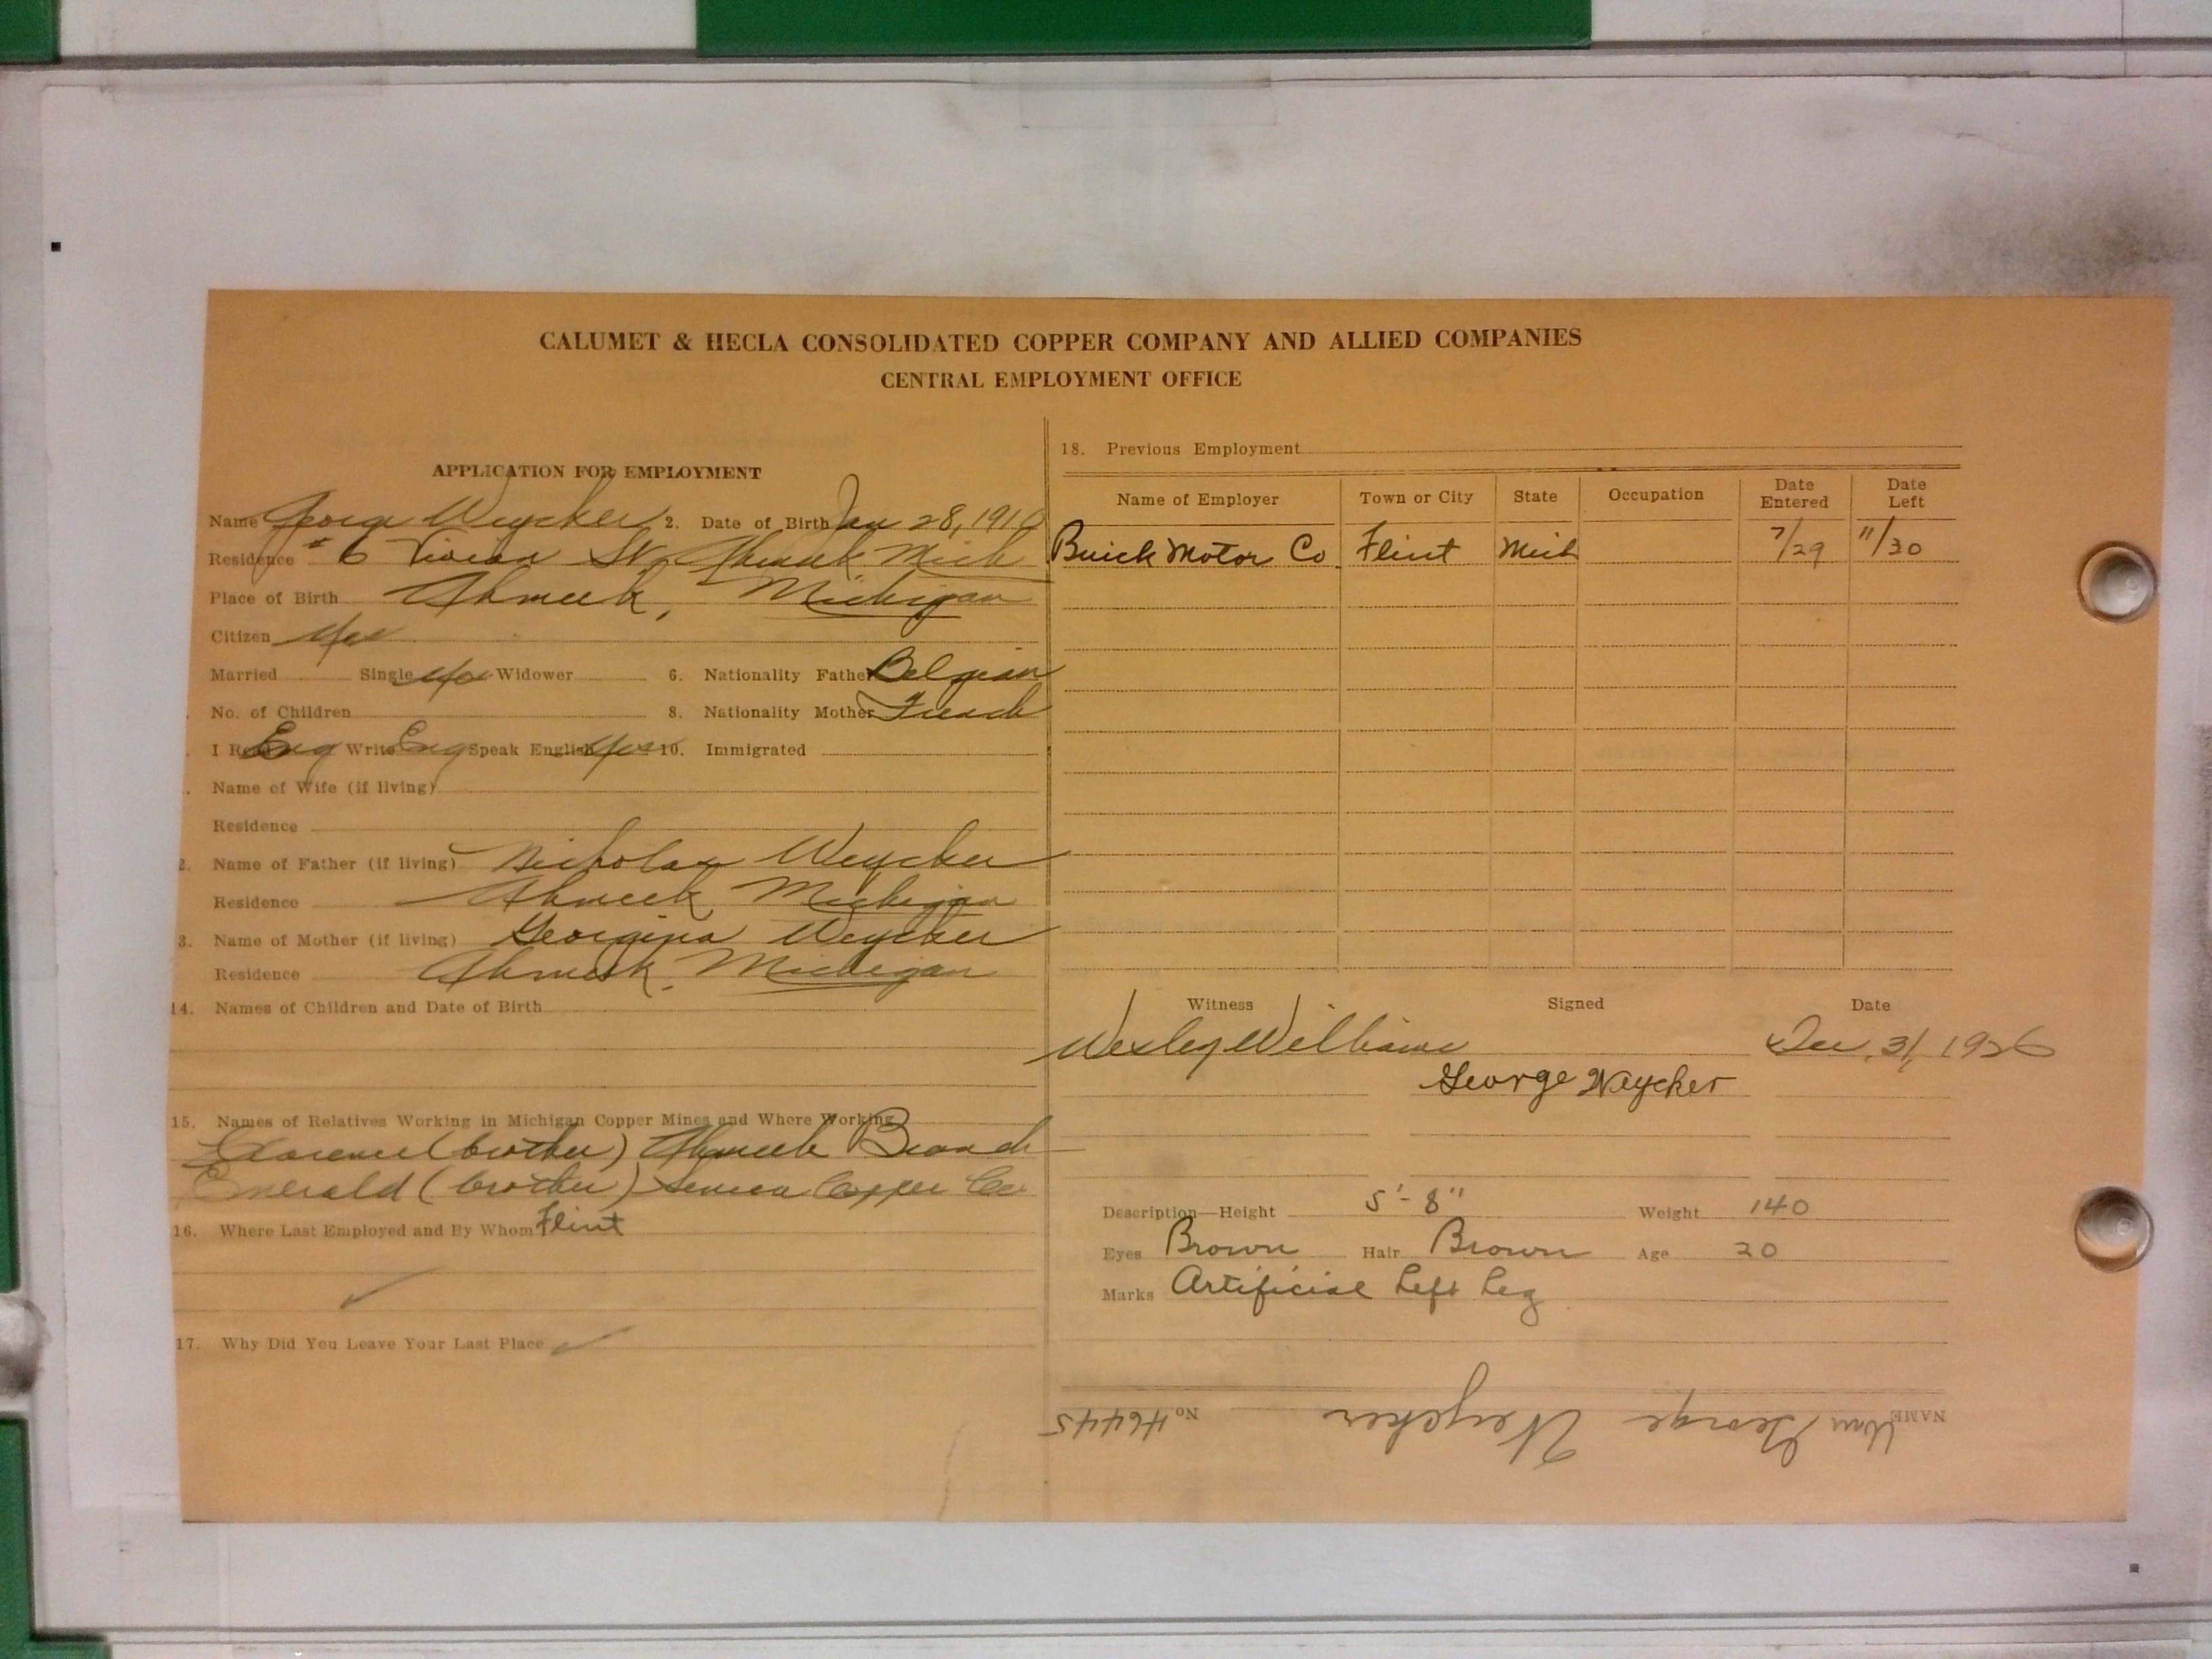 CALUMET & HECLA CONSOLIDATED COPPER COMPANY AND ALLIED COMPANIES
CENTRAL EMPLOYMENT OFFICE
APPLICATION FOR EMPLOYMENT
Name George Weycker 2. Date of Birth Jan 28, 1910
Residence #6 St. Ahmeek Mich
Place of Birth Ahmeek, Michigan
Citizen Yes
Married Single Yes Widower 6. Nationality Father Belgian
No. of Children 8. Nationality Mother French
I Read Eng Write Eng Speak English Yes 10. Immigrated
Name of Wife (if living)
Residence
2. Name of Father (if living) Nicholas Weycker
Residence Ahmeek, Michigan
3. Name of Mother (if living) Georgina Weycker
Residence Ahmeek, Michigan
14. Names of Children and Date of Birth
15. Names of Relatives Working in Michigan Copper Mines and Where Working
Clarence (brother) Ahmeek Branch
Emerald (brother) Seneca Copper Co.
16. Where Last Employed and By Whom Flint
17. Why Did You Leave Your Last Place
18. Previous Employment
Name of Employer Town or City State Occupation Date Entered Date Left
Buick Motor Co. Flint Mich 7/29 11/30
Witness Signed Date
Wesley Williams Dec. 31, 1926
George Weycker
Description—Height 5'-8" Weight 140
Eyes Brown Hair Brown Age 20
Marks Artificial Left Leg
NAME Wm George Weycker No 46445